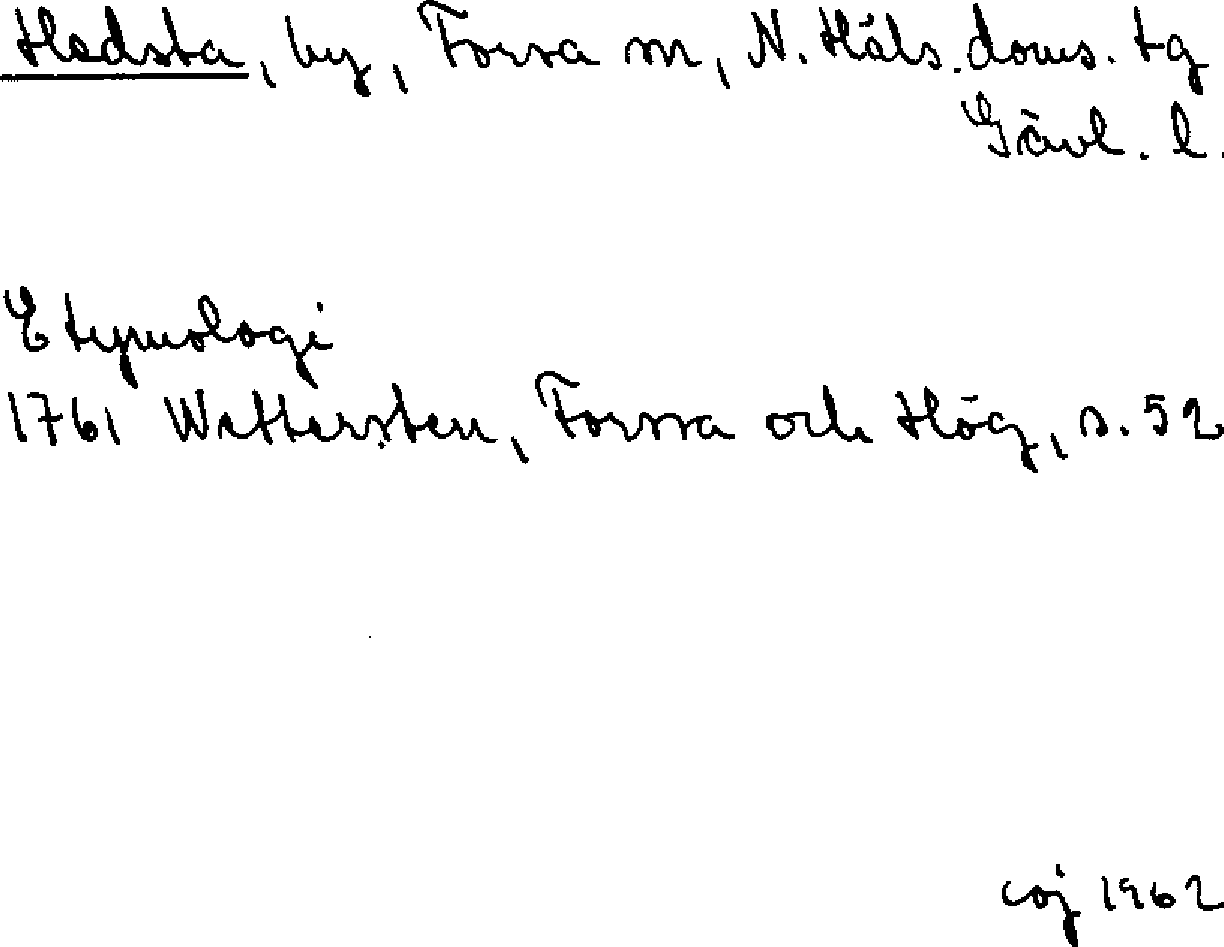 Hedsta, by, Forsa sn, N. Häls. doms. tg
Gävl. l.
Etymologi
1761 Wettersten, Forssa och Hög, s. 52
coj 1962